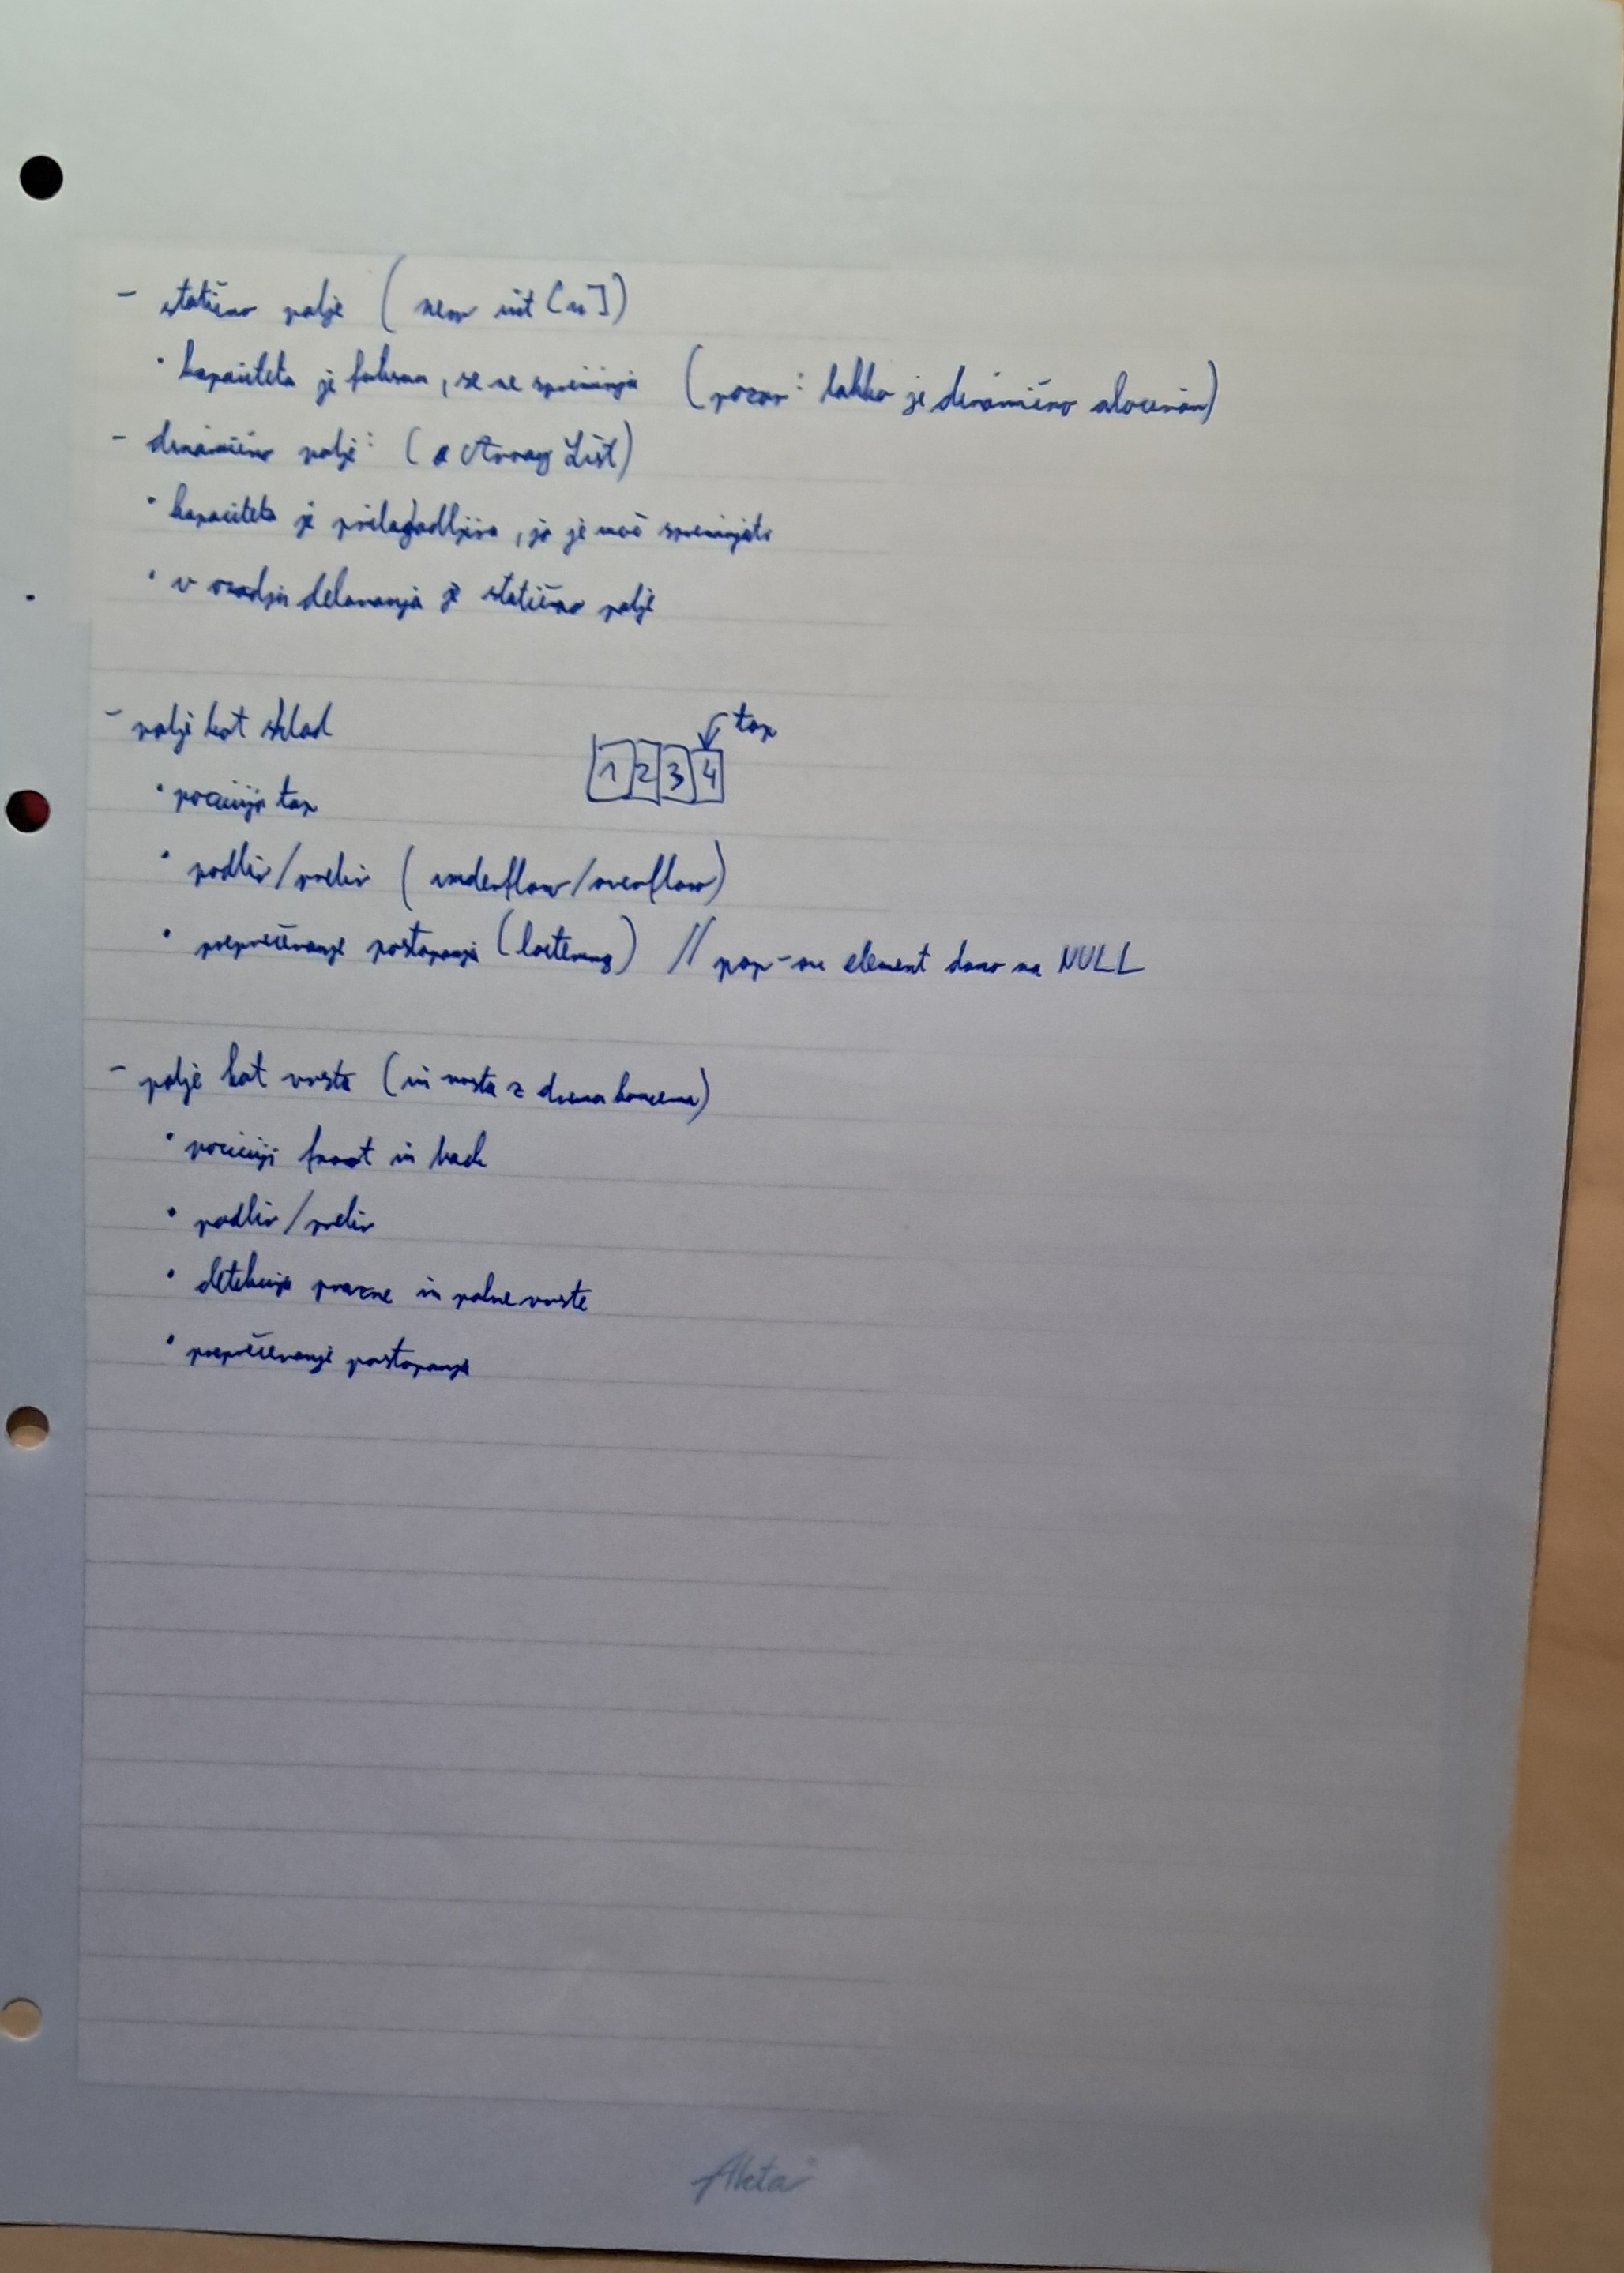 - statično polje (new int [n])
• kapaciteta je fiksna, se ne spreminja (pozor: lahko je dinamično alociran)
- dinamično polje: (ArrayList)
• kapaciteta je prilagodljiva, jo je moč spreminjati
• v ozadju delovanja je statično polje
- polje kot sklad
top
1 2 3 4
• pozicija top
• podliv/preliv (underflow/overflow)
• preprečevanje postopanja (loitering) // pop-an element damo na NULL
- polje kot vrsta (in vrsta z dvema koncema)
• poziciji front in back
• podliv/preliv
• detekcija prazne in polne vrste
• preprečevanje postopanja
Akta